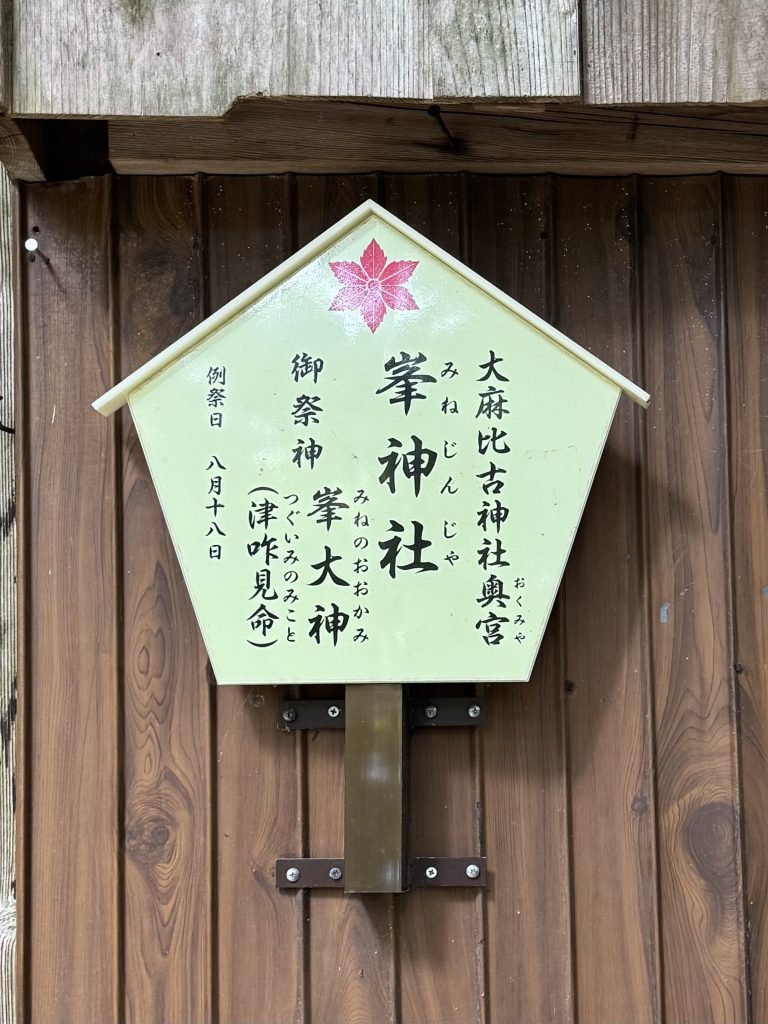 大麻比古神社奥宮
おくみや
峯神社
みねじんじゃ
御祭神
峯大神
みねのおおかみ
(津咋見命)
つぐいみのみこと
例祭日 八月十八日